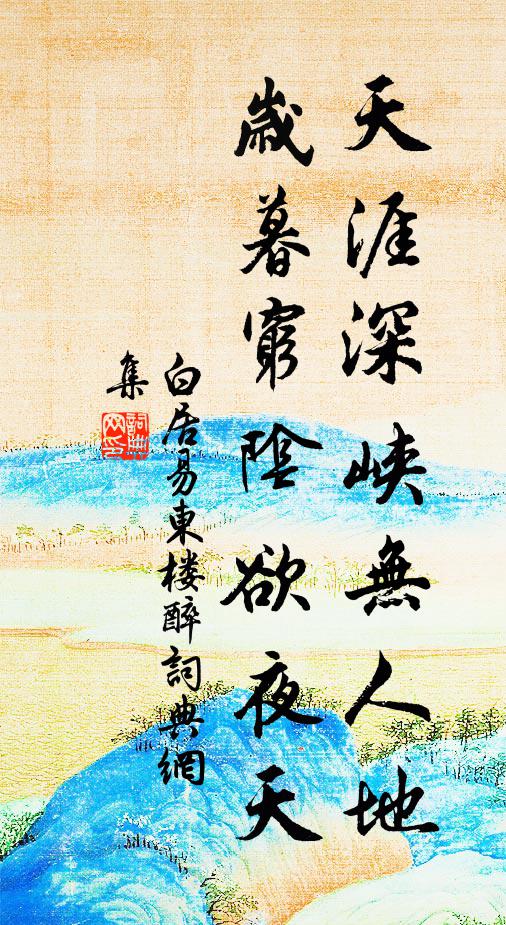 天涯深峽無人地
歲暮窮陰欲夜天
白居易東楼醉詞典網
集
詞典网印